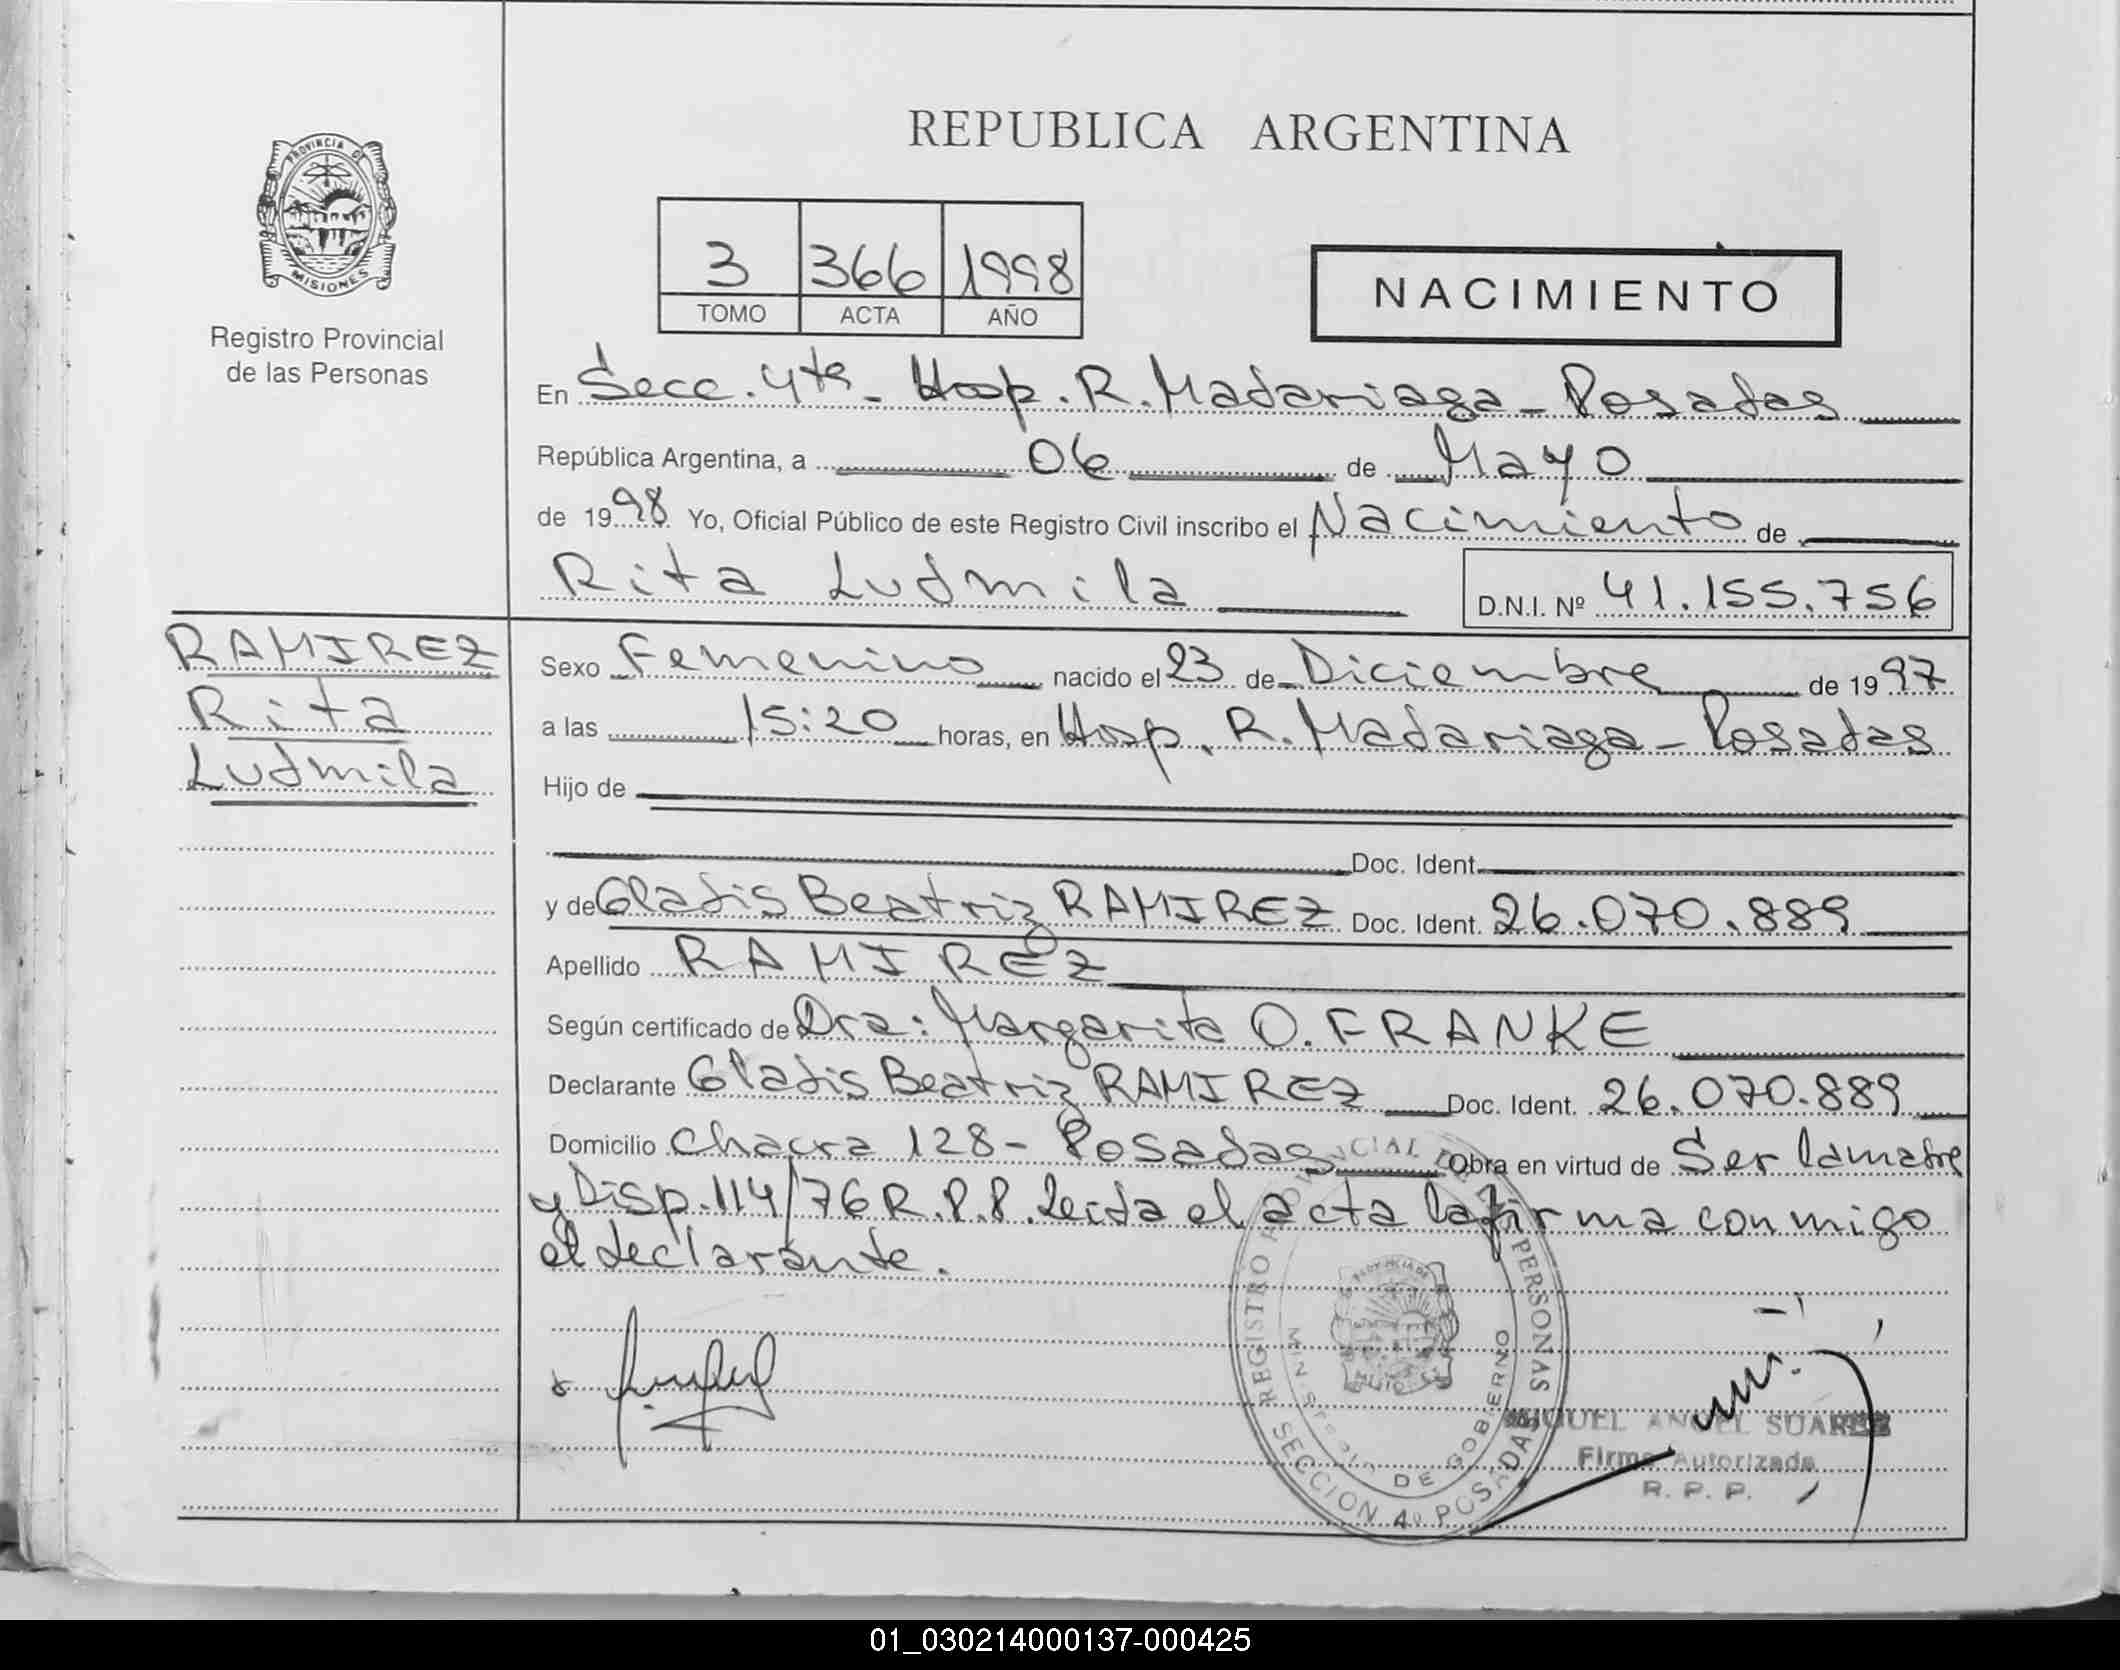 PROVINCIA DE
MISIONES
Registro Provincial
de las Personas
REPUBLICA ARGENTINA
3 366 1998
TOMO ACTA AÑO
NACIMIENTO
En Secc. 4ta - Hosp. R. Madariaga - Posadas
República Argentina, a 06 de Mayo
de 1998 Yo, Oficial Público de este Registro Civil inscribo el Nacimiento de
Rita Ludmila D.N.I. Nº 41.155.756
RAMIREZ
Rita
Ludmila
Sexo Femenino nacido el 23 de Diciembre de 1997
a las 15:20 horas, en Hosp. R. Madariaga - Posadas
Hijo de
Doc. Ident.
y de Gladis Beatriz RAMIREZ Doc. Ident. 26.070.889
Apellido RAMIREZ
Según certificado de Dra: Margarita O. FRANKE
Declarante Gladis Beatriz RAMIREZ Doc. Ident. 26.070.889
Domicilio Chacra 128 - Posadas Obra en virtud de Ser la madre
y Disp. 114/76 R.P.P. Leida el acta la firma conmigo
el declarante.
REGISTRO PROVINCIAL DE LAS PERSONAS
MINISTERIO DE GOBIERNO
SECCION 4º POSADAS
MIGUEL ANGEL SUAREZ
Firma Autorizada
R. P. P.
01_030214000137-000425